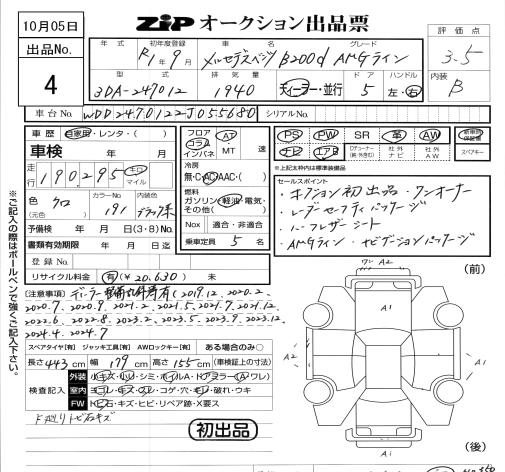 10月05日
ZIP オークション出品票
出品No.
4
年式 初年度登録 車名 グレード
R1年9月 メルセデスベンツ B200d AMGライン
評価点
3.5
型式 排気量 ドア ハンドル
3DA-247012 1940 ディーラー・並行 5 左・右
内装
B
車台No. WDD2470122J055680 シリアルNo.
車歴 自家用・レンタ・( )
車検 年 月
走行 190,295 キロ マイル
色 クロ カラーNo. 191 内装色 ブラック系
(元色)
予備検 年 月(3・8)No.
書類有効期限 年 月 日迄
登録No.
リサイクル料金 (有)¥20,630) 未
フロア AT
コラム
インパネ MT 速
冷房
無・C・AC・AAC・( )
燃料
ガソリン・軽油・電気・
その他( )
Nox 適合・非適合
乗車定員 5 名
PS PW SR 革 AW
ナビ エアB 社外ナビ 社外AW
新車時保証書
スペアキー
※上記太枠内は標準装備品
セールスポイント
・オークション初出品・ワンオーナー
・レーダーセーフティパッケージ
・ハーフレザーシート
・AMGライン・ナビゲーションパッケージ
[注意事項] ディーラー整備記録有(2019.12、2020.2、
2020.7、2020.9、2021.2、2021.5、2021.7、2021.12、
2022.6、2022.8、2023.2、2023.5、2023.9、2023.12、
2024.4、2024.7
スペアタイヤ[有] ジャッキ工具[有] AWロックキー[有] ある場合のみ○
長さ 443 cm 幅 179 cm 高さ 155 cm (車検証上の寸法)
検査記入
外装 小キズ・凹・シミ・ホイルA・ドアミラー(A・ワレ)
室内 ヨゴレ・キズ・スレ・コゲ・穴・キレ・破れ・ウキ
FW トビ石・キズ・ヒビ・リペア跡・X要ス
ドア廻りトビ石キズ
初出品
※ご記入の際はボールペンで強くご記入下さい。
(前)
A2
A1
A2
A1
(後)